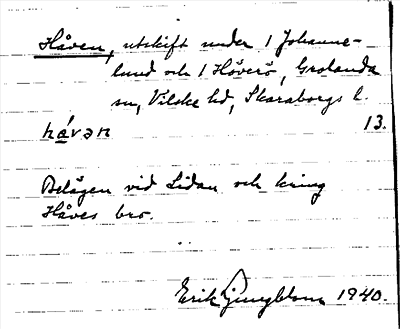 Håven, utskift under 1 Johanne-
lund och 1 Höverö, Grolanda
sn, Vilske hd, Skaraborgs l.
hávən 13.
Belägen vid Lidan och kring
Håves bro.
Erik Ljungblom 1940.